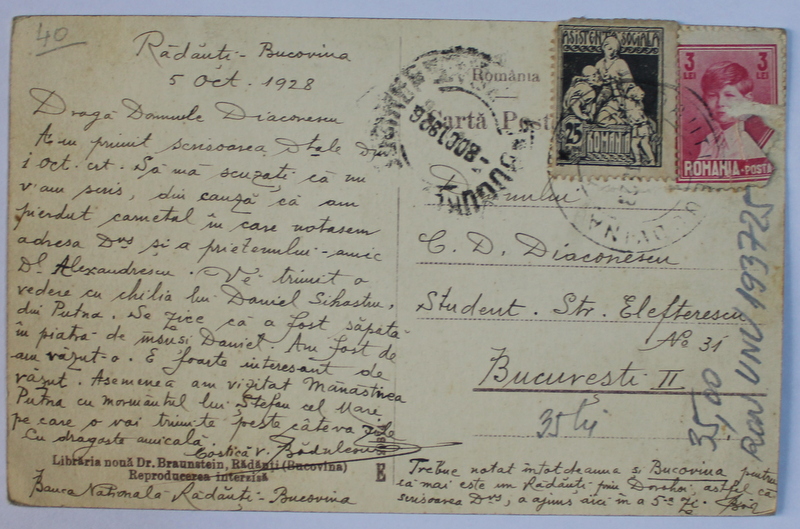 40
Rădăuți - Bucovina
5 Oct. 1928
Dragă Domnule Diaconescu
Am primit scrisoarea Dtale din
1 Oct. crt. Să mă scuzați că nu
v'am scris, din cauză că am
pierdut carnetul în care notasem
adresa Dvs și a prietenului-amic
Dl. Alexandrescu. Vĕ trimit o
vedere cu chilia lui Daniel Sihastru,
din Putna. Se zice că a fost săpată
în piatră de însuși Daniel. Am fost de
am văzut-o. E foarte interesant de
văzut. Asemenea am vizitat Mănăstirea
Putna cu mormântul lui Ștefan cel Mare
pe care o voi trimite peste câteva zile
Cu dragoste amicală.
Costică V.
Librăria nouă Dr. Braunstein, Rădăuți (Bucovina)
Reproducerea interzisă
Banca Națională Rădăuți - Bucovina
E
România
Cartă Poștală
ASISTENȚA SOCIALA
25
ROMÂNIA
3 LEI
3 LEI
ROMANIA·POSTA
8 OCT 1928
Domnului
C. D. Diaconescu
Student. Str. Elefterescu
No 31
București II
35 lei
35,00
RON UNU 193725
Trebue notat întotdeauna și Bucovina pentru
că mai este un Rădăuți prin Dorohoi astfel că
scrisoarea Dvs, a ajuns aici în a 5-a zi.